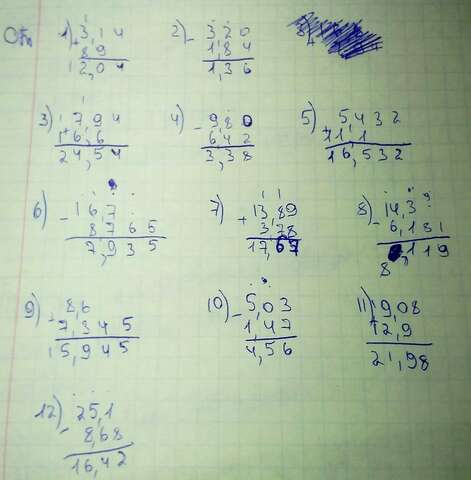 1) 3,14
+ 8,9
12,04
2) - 3,20
1,84
1,36
3) 17,94
+ 6,6
24,54
4) - 9,80
6,42
3,38
5) 5,432
+ 11,1
16,532
6) - 16,7
8,765
7,935
7) + 13,89
3,78
17,67
8) - 14,3
6,181
8,119
9) 8,6
7,345
15,945
10) - 5,03
1,47
4,56
11) 19,08
+ 2,9
21,98
12) - 25,1
8,68
16,42